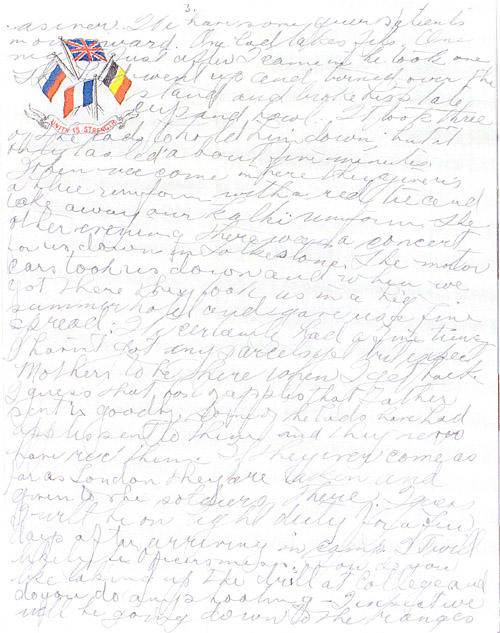 3.
as iner. We have some queer patients
in our ward. One lad takes fits. One
night just after I came in he took one
went up and turned over the
table
cup and took three
of the lads to hold him down but it
only lasted about five minutes
When we come in here they give us
a blue uniform with a red tie and
take away our kalki uniform. The
other evening there was a concert
for us, down in Folkestone. The motor
cars took us down and when we
got there they took us in a big
summer hotel and gave us a fine
spread. I certainly had a fine time
I haven't got any parcels but expect
Mothers to be there when I get back
I guess that box of apples that Father
sent is gone. Some of the lads have had
apples sent to them and they never
have rec'd them. If they ever come as
far as London they are taken and
given to the soldiers there. I guess
I will be on light duty for a few
days after arriving in camp. I will
like taking up the drill at College and
do you do any shooting - I expect we
will be going down to the ranges
UNITY IS STRENGTH